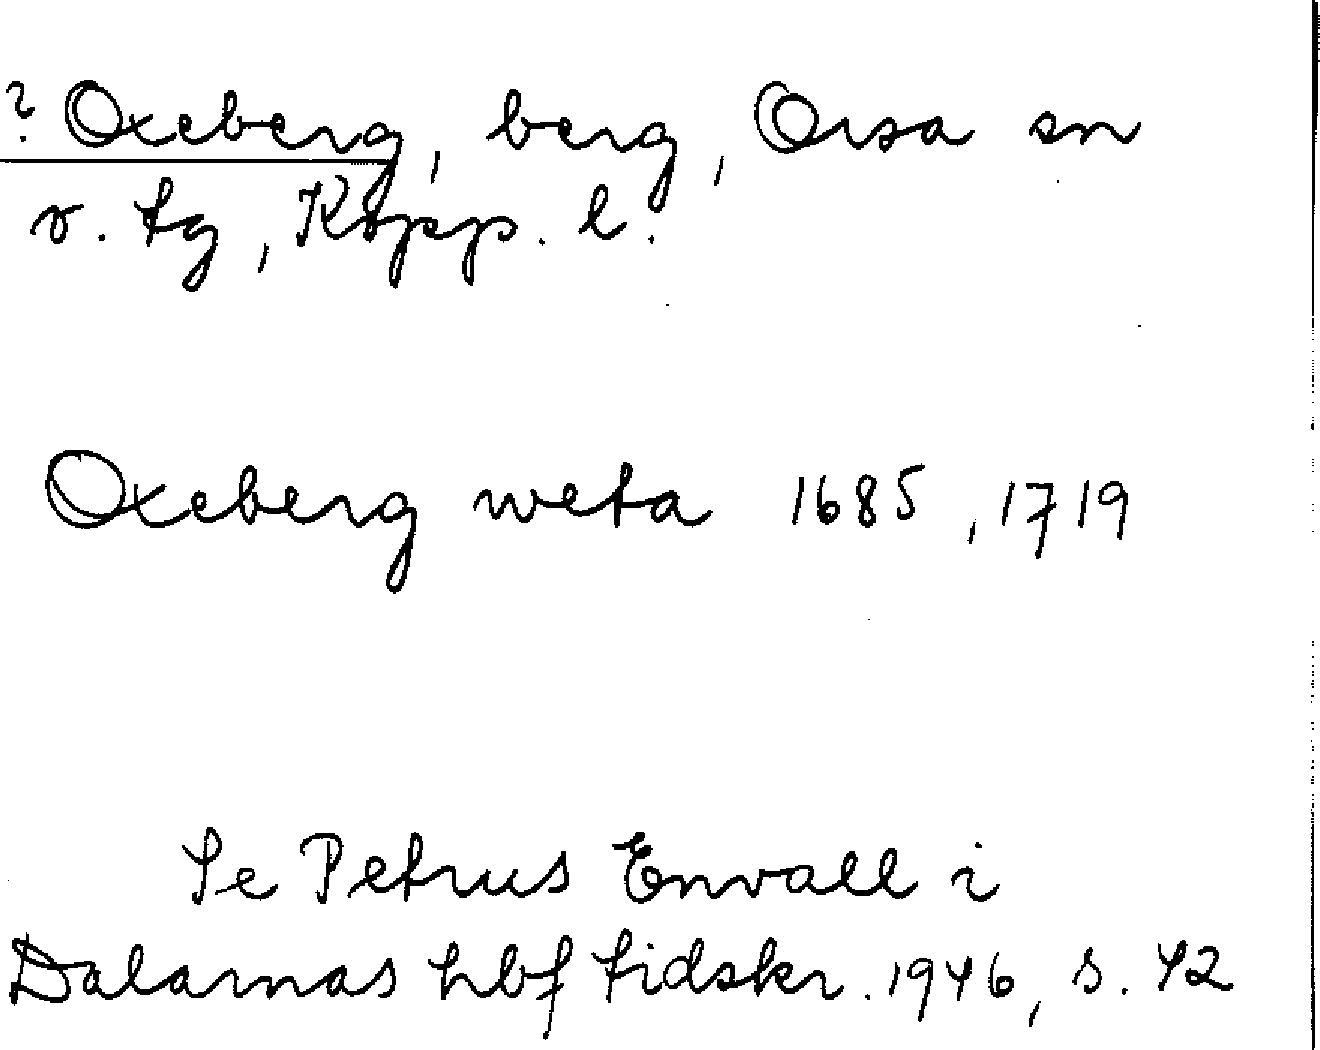 ? Oxeberg, berg, Orsa sn
o. tg, Kopp. l.
Oxeberg weta 1685, 1719
Se Petrus Envall i
Dalarnas hbf tidskr. 1946, s. 42